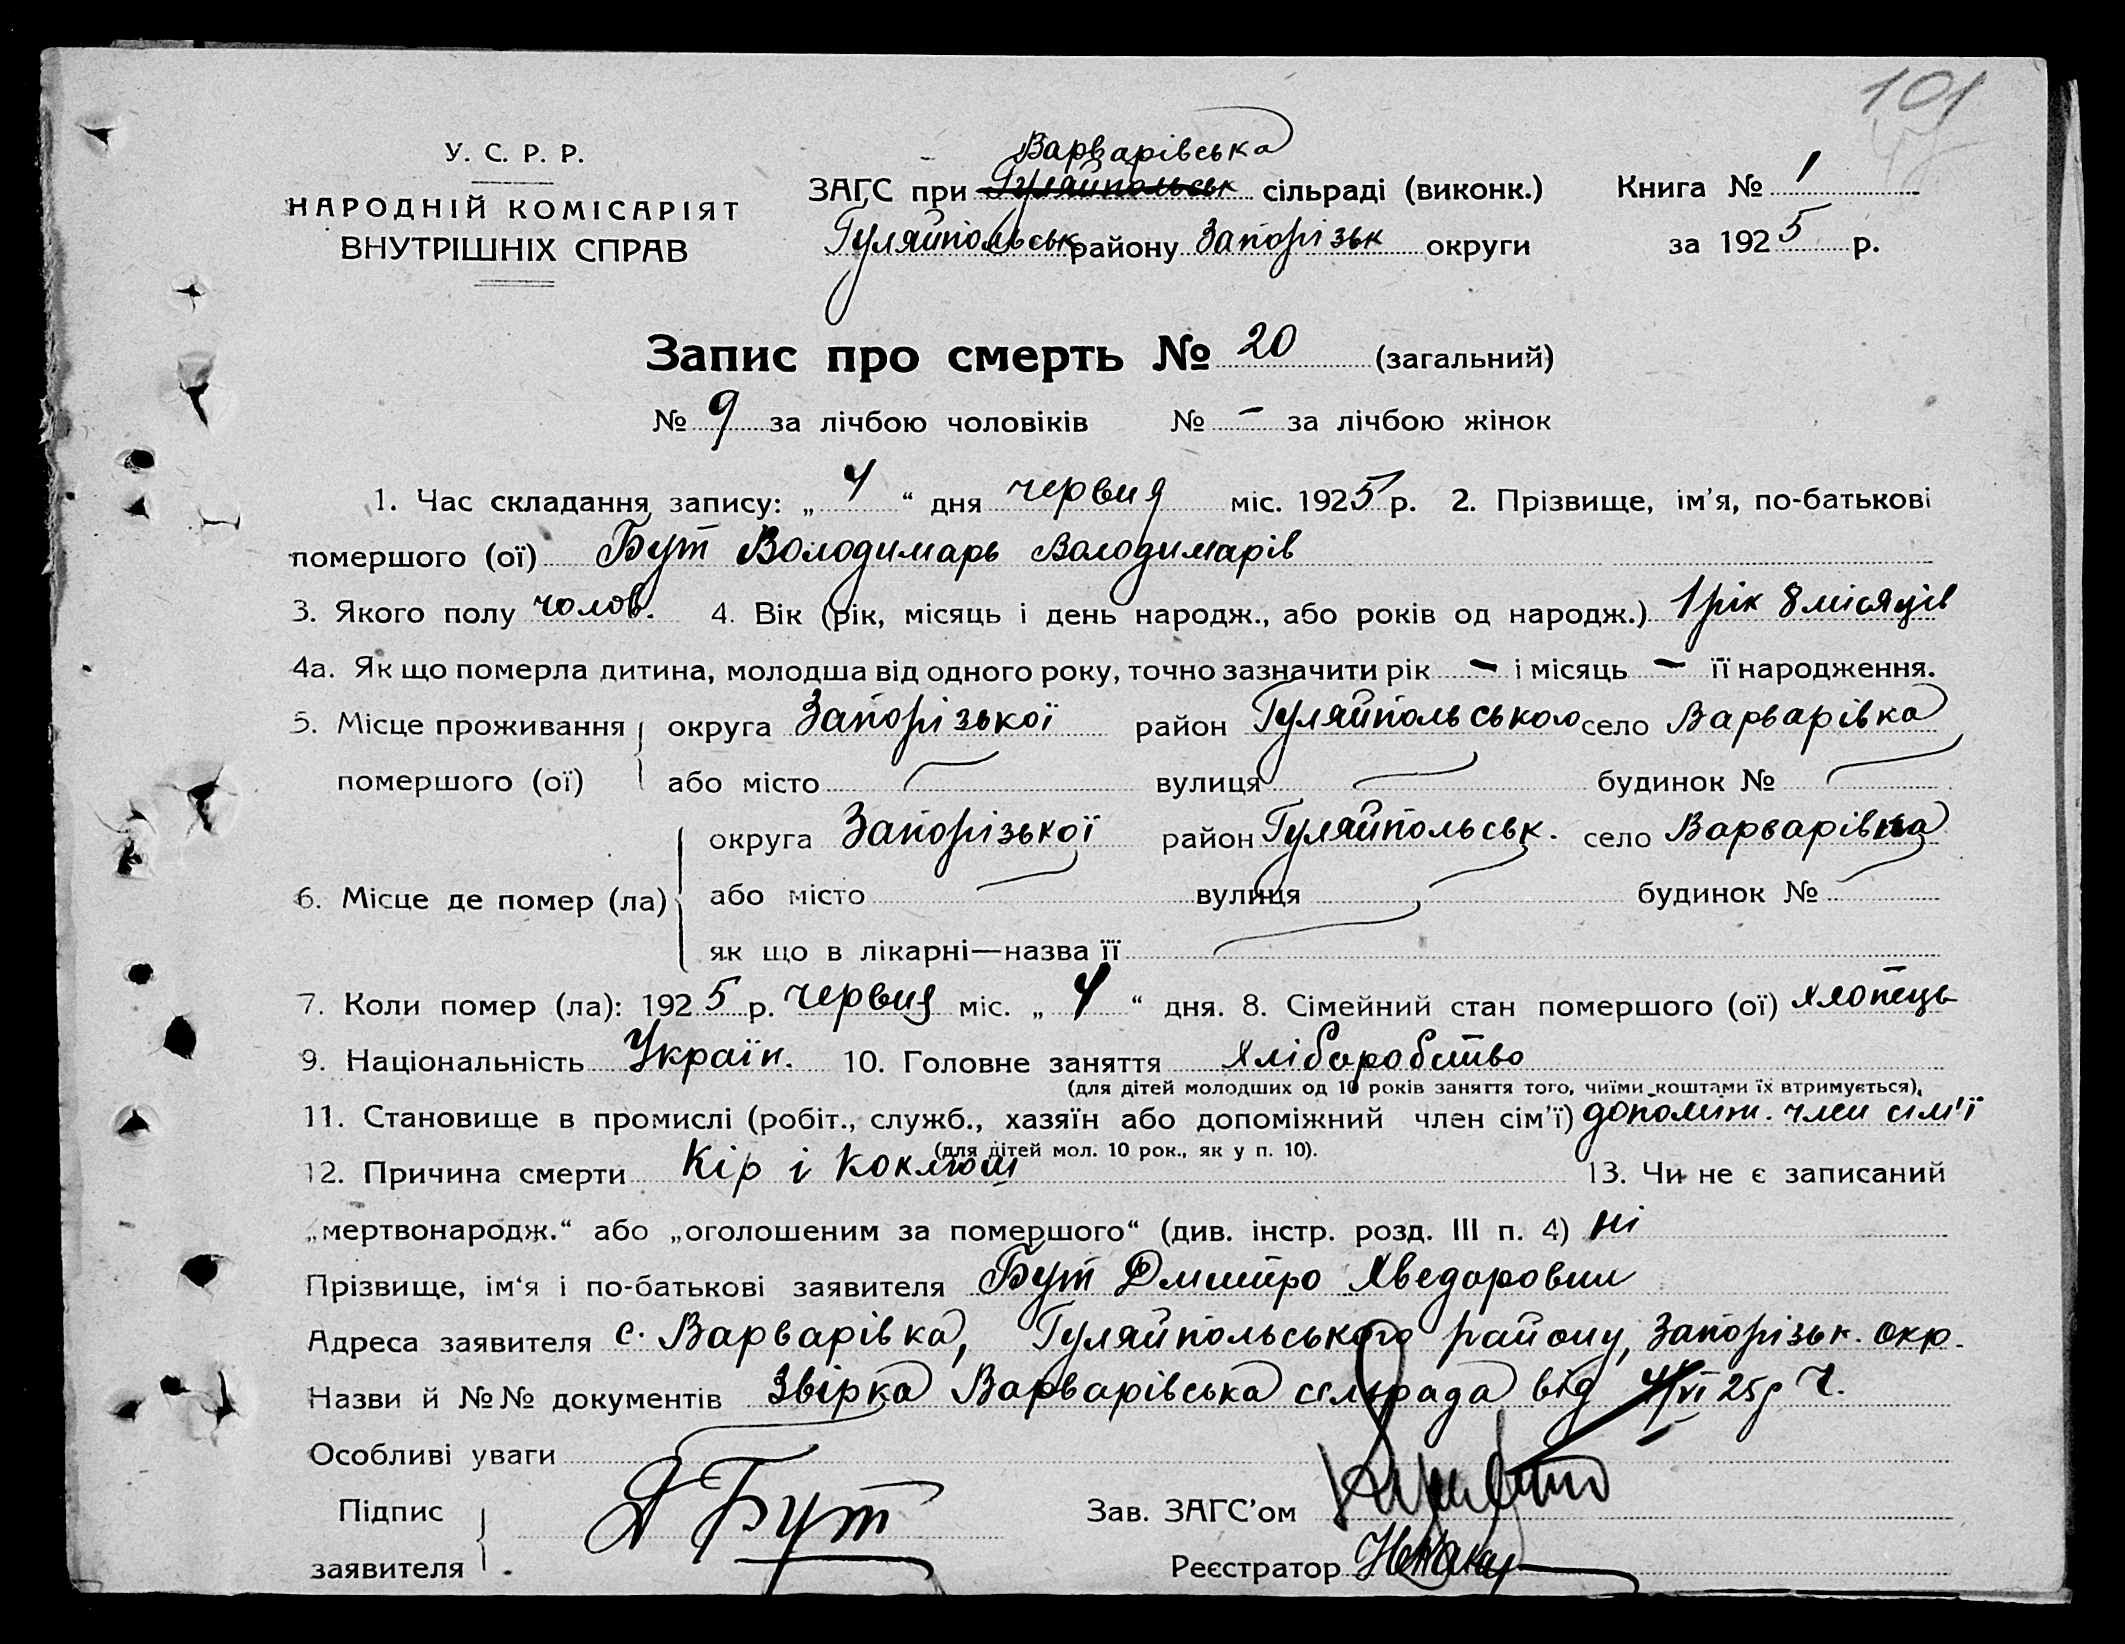 101
У. С. Р. Р.
НАРОДНІЙ КОМІСАРІЯТ
ВНУТРІШНІХ СПРАВ
Варварівська
ЗАГС при Гуляйпольськ сільраді (виконк.)
Гуляйпольськ району Запорізьк округи
Книга № 1
за 1925 р.
Запис про смерть № 20 (загальний)
№ 9 за лічбою чоловіків № – за лічбою жінок
1. Час складання запису: „ 4 “ дня червня міс. 1925 р. 2. Прізвище, ім'я, по-батькові
помершого (ої) Бут Володимарь Володимарів
3. Якого полу чолов. 4. Вік (рік, місяць і день народж., або років од народж.) 1 рік 8 місяців
4а. Як що померла дитина, молодша від одного року, точно зазначити рік – і місяць – її народження.
5. Місце проживання округа Запорізької район Гуляйпольського село Варварівка
помершого (ої) або місто вулиця будинок №
округа Запорізької район Гуляйпольськ. село Варварівка
6. Місце де помер (ла) або місто вулиця будинок №
як що в лікарні—назва її
7. Коли помер (ла): 1925 р. червня міс. „ 4 “ дня. 8. Сімейний стан помершого (ої) хлопець
9. Національність Україн. 10. Головне заняття Хліборобство
(для дітей молодших од 10 років заняття того, чиїми коштами їх втримується).
11. Становище в промислі (робіт., служб., хазяїн або допоміжний член сім'ї) допоміж. член сім'ї
(для дітей мол. 10 рок., як у п. 10).
12. Причина смерти Кір і Коклюш 13. Чи не є записаний
„мертвонародж.“ або „оголошеним за помершого“ (див. інстр. розд. III п. 4) ні
Прізвище, ім'я і по-батькові заявителя Бут Дмитро Хведорович
Адреса заявителя с. Варварівка, Гуляйпольського району, Запорізьк. окр.
Назви й №№ документів Звірка Варварівська сільрада від 4/VI 25р
Особливі уваги
Підпис
заявителя
Д Бут
Зав. ЗАГС'ом
Реєстратор